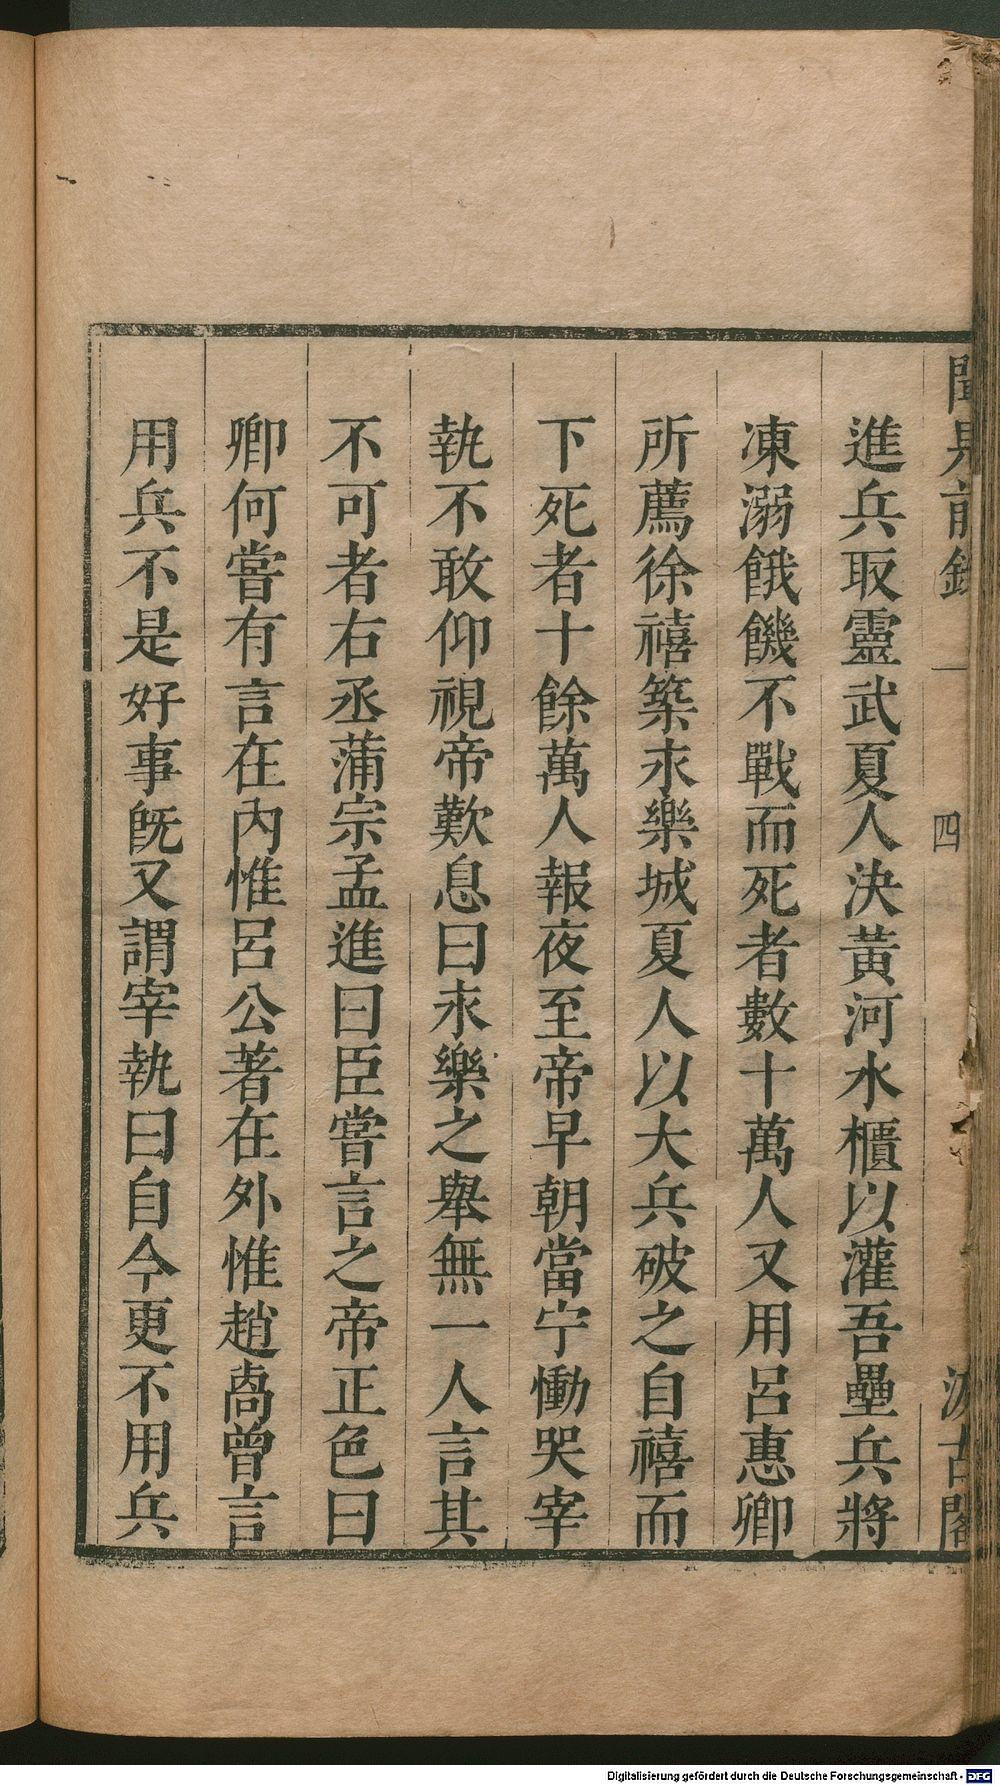 聞見前錄 一 四 汲古閣
進兵取靈武夏人決黃河水櫃以灌吾壘兵將
凍溺餓饑不戰而死者數十萬人又用呂惠卿
所薦徐禧築永樂城夏人以大兵破之自禧而
下死者十餘萬人報夜至帝早朝當宁慟哭宰
執不敢仰視帝歎息曰永樂之舉無一人言其
不可者右丞蒲宗孟進曰臣嘗言之帝正色曰
卿何嘗有言在內惟呂公著在外惟趙卨曾言
用兵不是好事既又謂宰執曰自今更不用兵
Digitalisierung gefördert durch die Deutsche Forschungsgemeinschaft - DFG